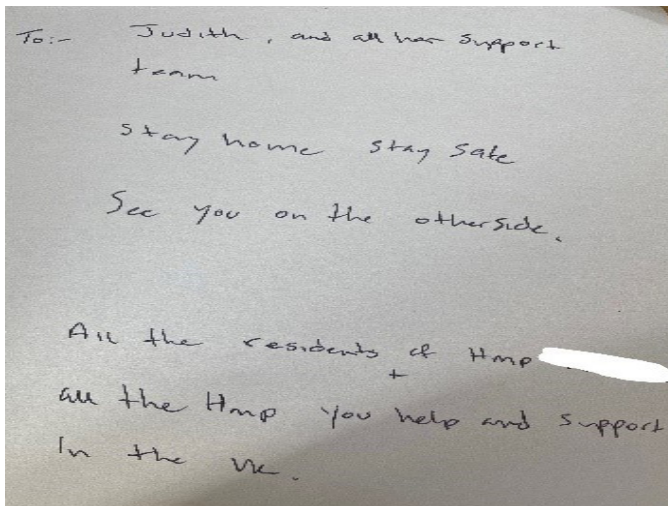 To:- Judith, and all her support
team
stay home stay safe
See you on the otherside.
All the residents of Hmp
+
all the Hmp you help and support
In the UK.